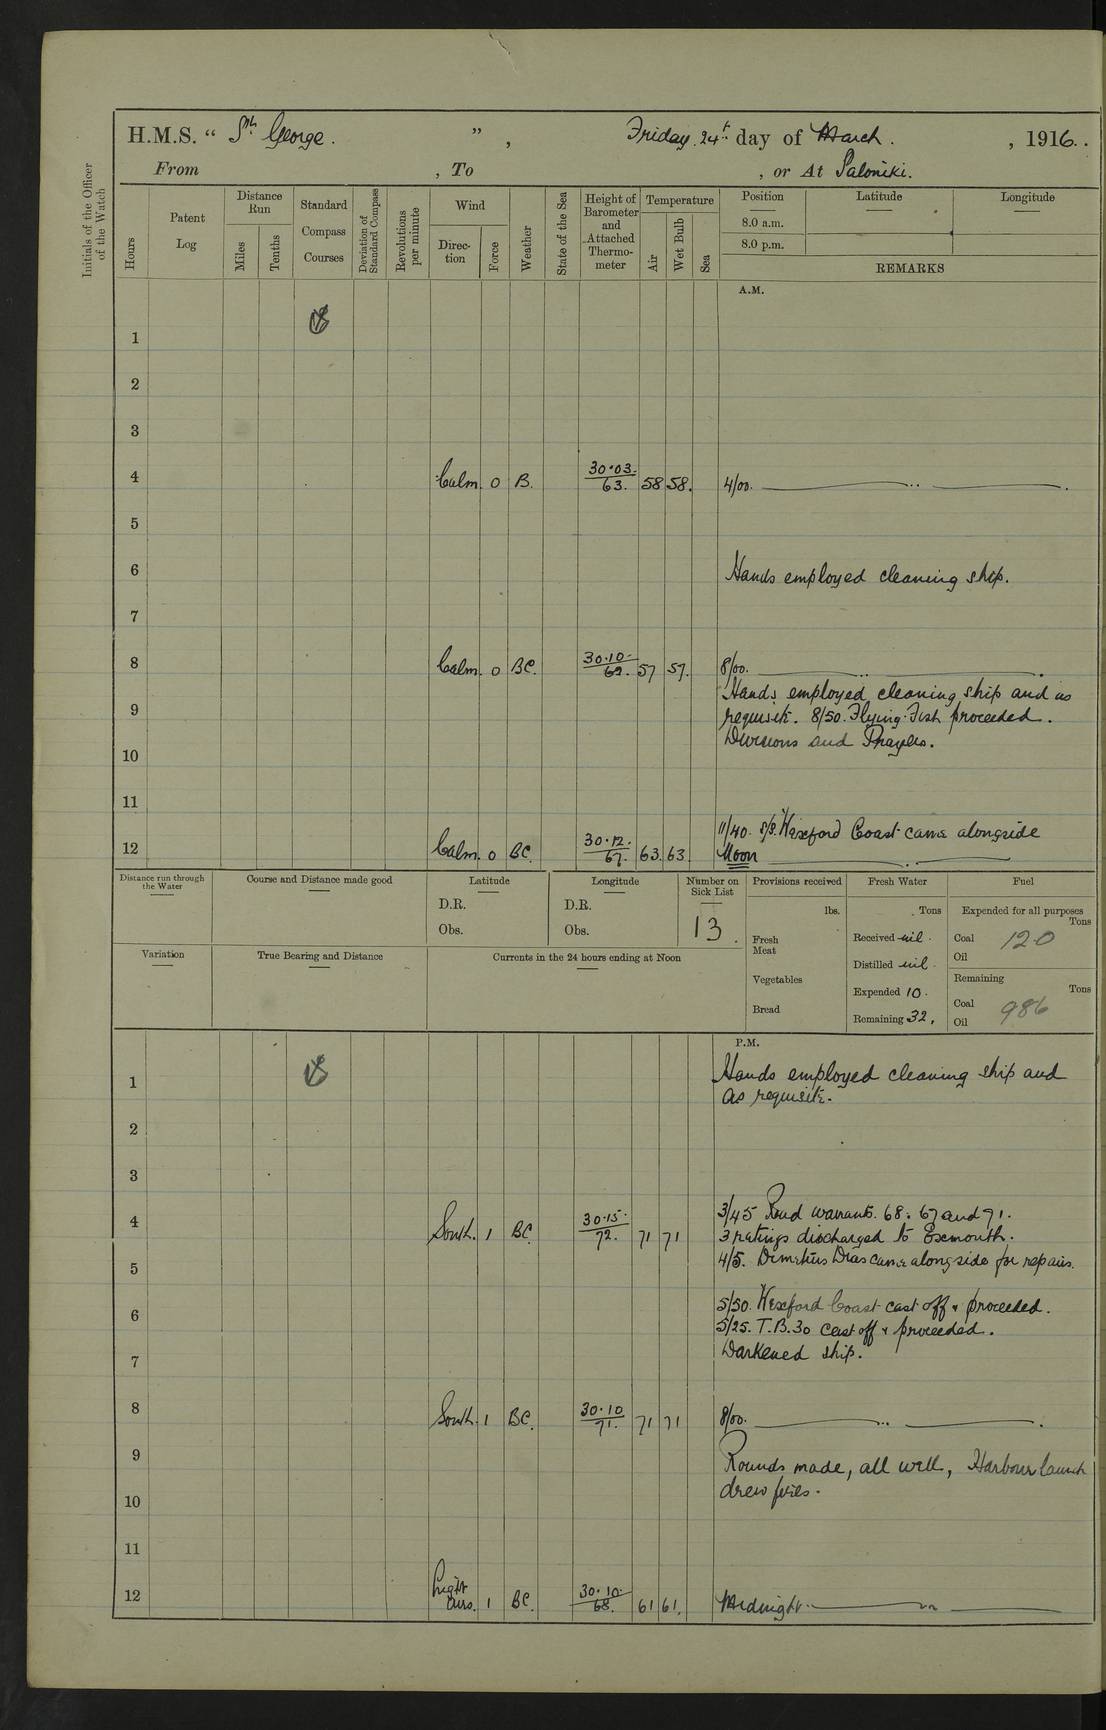 H.M.S. “ St George. ” , Friday 24th day of March. , 1916.
From , To , or At Saloniki.
Initials of the Officer of the Watch
Hours
Patent Log
Distance Run
Miles
Tenths
Standard Compass Courses
Deviation of Standard Compass
Revolutions per minute
Wind
Direction
Force
Weather
State of the Sea
Height of Barometer and Attached Thermometer
Temperature
Air
Wet Bulb
Sea
Position Latitude Longitude
8.0 a.m.
8.0 p.m.
REMARKS
A.M.
1
2
3
4 Calm. 0 B. 30.03 63. 58 58. 4/00.
5
6 Hands employed cleaning ship.
7
8 Calm. 0 BC. 30.10 57 57. 8/00.
Hands employed cleaning ship and as
9 requisite. 8/50. Flying Fish proceeded.
Divisions and Prayers.
10
11
11/40. s/s. Wexford Coast came alongside
12 Calm. 0 BC. 30.12. 67. 63. 63. Noon
Distance run through the Water
Course and Distance made good
Latitude
D.R.
Obs.
Longitude
D.R.
Obs.
Number on Sick List
13.
Provisions received
lbs.
Fresh Meat
Vegetables
Bread
Fresh Water
Tons
Received nil.
Distilled nil.
Expended 10.
Remaining 32.
Fuel
Expended for all purposes
Tons
Coal 120
Oil
Remaining
Tons
Coal 986
Oil
Variation
True Bearing and Distance
Currents in the 24 hours ending at Noon
P.M.
1 Hands employed cleaning ship and
as requisite.
2
3
3/45 Read warrants. 68. 67 and 71.
4 South. 1 BC. 30.15. 72. 71 71 3 ratings discharged to Exmouth.
4/5. Dimetrius came alongside for repairs.
5
5/50. Wexford Coast cast off & proceeded.
6 5/25. T.B. 30 cast off & proceeded.
Darkened ship.
7
8 South. 1 BC. 30.10 71. 71 71 8/00.
9 Rounds made, all well, Harbour launch
drew fires.
10
11
12 Light airs. 1 BC. 30.10. 68. 61 61. Midnight.